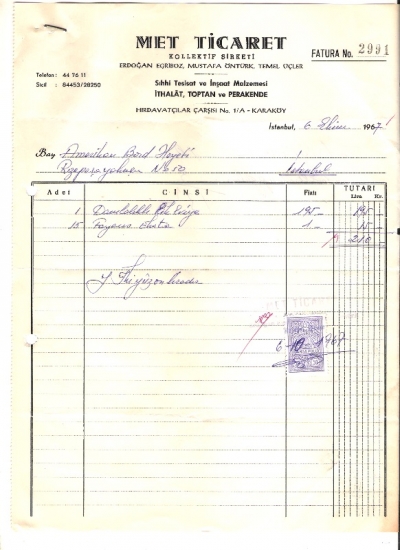 MET TİCARET
KOLLEKTİF ŞİRKETİ
ERDOĞAN EĞRİBOZ, MUSTAFA ÖNTÜRK, TEMEL ÜÇLER
FATURA No. 2991
Telefon: 44 76 11
Sicil : 84453/28250
Sıhhi Tesisat ve İnşaat Malzemesi
İTHALÂT, TOPTAN ve PERAKENDE
HIRDAVATÇILAR ÇARŞISI No. 1/A - KARAKÖY
İstanbul, 6 Ekim 1967
Bay Amerikan Bord Heyeti
Rızapaşa yokuşu No 50 İstanbul
Adet CİNSİ Fiatı TUTARI
Lira Kr.
1 Damlalıklı 195 195
15 Fayans 1 15
210
MET TİCARET
6-10-1967